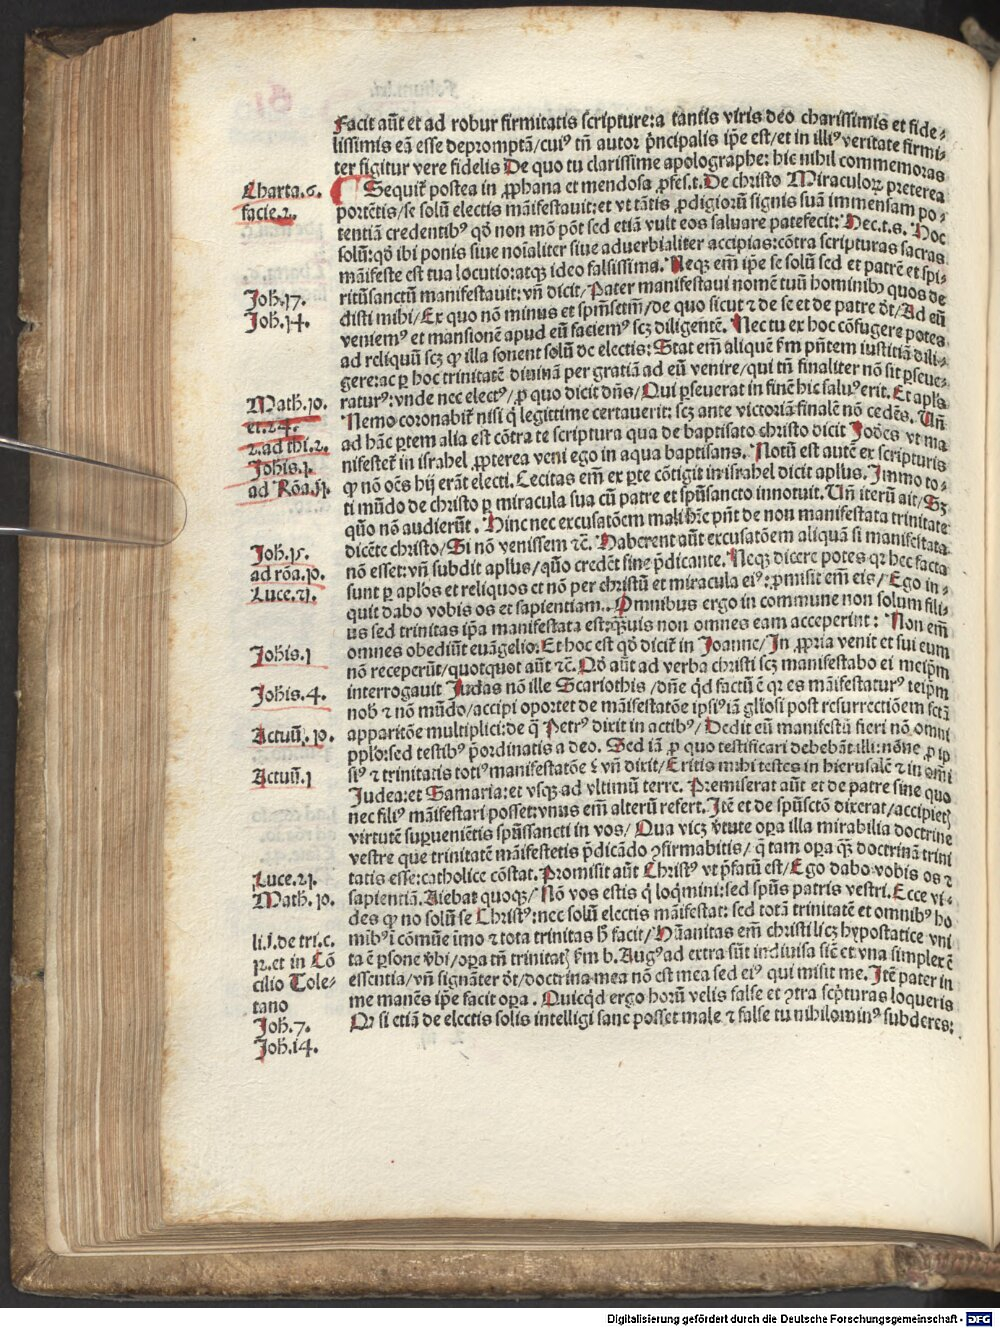 Facit aūt et ad robur firmitatis scripture: a tantis viris deo charissimis et fide-
lissimis eā esse depromptā/cuiꝰ tñ autor p̄ncipalis ip̄e est/et in illiꝰ veritate firmi-
ter figitur vere fidelis De quo tu clarissime apolographe: hic nihil commemoras
Charta.6.
facie.2.
Sequit̄ postea in ꝓphana et mendosa ꝓfes.t. De christo Miraculoꝝ preterea
portētis/se solū electis māifestauit: et vt tātis ꝓdigiorū signis suā immensam po-
tentiā credentibꝰ qđ non mō pōt sed etiā vult eos saluare patefecit: Hec.t.s. Hoc
solū: qđ ibi ponis siue noīaliter siue aduerbialiter accipias: cōtra scripturas sacras
māifeste est tua locutio: atqꝫ ideo falsissima. Neqꝫ em̄ ip̄e se solū sed et patrē et spi-
Joh.17.
ritūsanctū manifestauit: vñ dicit/Pater manifestaui nomē tuū hominibꝰ quos de
Joh.14.
disti mihi/Ex quo nō minus et spm̄setm̄/de quo sicut ⁊ de se et de patre dt̄/Ad eū
veniemꝰ et mansionē apud eū faciemꝰ scꝫ diligentē. Nec tu ex hoc cōfugere potes
ad reliquū scꝫ ꝙ illa sonent solū de electis: Stat em̄ aliquē ẜm pn̄tem iustitiā dili-
gere: ac ꝑ hoc trinitatē diuinā per gratiā ad eū venire/qui tñ finaliter nō sit ꝑseue-
Math.10.
raturꝰ: vnde nec electꝰ/ꝓ quo dicit dn̄s/Qui ꝑseuerat in finē hic saluꝰ erit. Et apl̄s
et.24.
Nemo coronabit̄ nisi q̇ legittime certauerit: scꝫ ante victoriā finalē nō cedēs. Uñ
2.ad thi.2.
ad hāc ꝑtem alia est cōtra te scriptura qua de baptisato christo dicit Joēs vt ma
Johis.1.
nifestet̄ in israhel ꝓpterea veni ego in aqua baptisans. Notū est autē ex scripturis
ad Rōa.11.
ꝙ nō oēs hij erāt electi. Cecitas em̄ ex ꝑte cōtigit in israhel dicit aplus. Immo to-
ti mūdo de christo ꝑ miracula sua cū patre et spūsancto innotuit. Uñ iterū ait/Sꝫ
quō nō audierūt. Hinc nec excusatōem mali hr̄e pn̄t de non manifestata trinitate
Joh.15.
dicēte christo/Si nō venissem ⁊c̄. Haberent aūt excusatōem aliquā si manifestata
ad rōa.10.
nō esset: vñ subdit aplus/quō credēt sine p̄dicante. Neqꝫ dicere potes qꝫ hec facta
Luce.21.
sunt ꝑ aplos et reliquos et nō per christū et miracula eiꝰ: ꝓmisit em̄ eis/Ego in-
quit dabo vobis os et sapientiam. Omnibus ergo in commune non solum fili-
us sed trinitas ip̄a manifestata est: qꝫuis non omnes eam acceperint: Non em̄
omnes obediūt euāgelio: Et hoc est qđ dicit̄ in Joanne/In ꝓpria venit et sui eum
Johis.1
nō receperūt/quotquot aūt ⁊c̄. Qđ aūt ad verba christi scꝫ manifestabo ei meip̄m
Johis.4.
interrogauit Judas nō ille Scariothis/dn̄e qđ factū ē qꝛ es māifestaturꝰ teip̄m
nob̄ ⁊ nō mūdo/accipi oportet de māifestatōe ipsiꝰ iā gl̄iosi post resurrectiōem sctā
Actuū.10.
apparitōe multiplici: de q̄ Petrꝰ dixit in actibꝰ/Dedit eū manifestū fieri nō omni
pplo: sed testibꝰ p̄ordinatis a deo. Sed iā ꝓ quo testificari debebāt illi: nōne ꝓ ip
Actuū.1
siꝰ ⁊ trinitatis totiꝰ manifestatōe: vñ dixit/Eritis mihi testes in hierusalē ⁊ in om̄i
Judea: et Samaria: et vsqꝫ ad vltimū terre. Premiserat aūt et de patre sine quo
nec filiꝰ māifestari posset: vnus em̄ alterū refert. Itē et de spūscto dixerat/accipietꝭ
virtutē superueniētis spūssancti in vos/Qua vicꝫ v̄tute oꝑa illa mirabilia doctrine
vestre que trinitatē māifestetis p̄dicādo ꝯfirmabitis/q̄ tam oꝑa qꝫ doctrinā trini
Luce.21.
tatis esse: catholice cōstat. Promisit aūt Christꝰ vt p̄fatū est/Ego dabo vobis os ⁊
Math.10.
sapientiā. Aiebat quoqꝫ/Nō vos estis q̇ loqmini: sed spūs patris vestri. Ecce vi-
des ꝙ no solū se Christꝰ: nec solū electis māifestat: sed totā trinitatē et omnibꝰ ho
li.1.de tri.c.
mībꝰ ī cōmūe īmo ⁊ tota trinitas h̄ facit/Hūanitas em̄ christi licꝫ hypostatice vni
12.et in Cō
ta ē ꝑsone v̄bi/oꝑa tñ trinitatꝭ ẜm b. Augꝰ ad extra sūt indiuisa siē et vna simplex ē
cilio Tole-
essentia/vñ signāter dt̄/doctrina mea nō est mea sed eiꝰ qui misit me. Itē pater in
tano
me manēs ip̄e facit oꝑa. Quicqđ ergo horū velis false et ꝯtra scpturas loqueris
Joh.7.
Qꝫ si etiā de electis solis intelligi sane posset male ⁊ false tu nihilominꝰ subderes:
Joh.14.
Digitalisierung gefördert durch die Deutsche Forschungsgemeinschaft - DFG